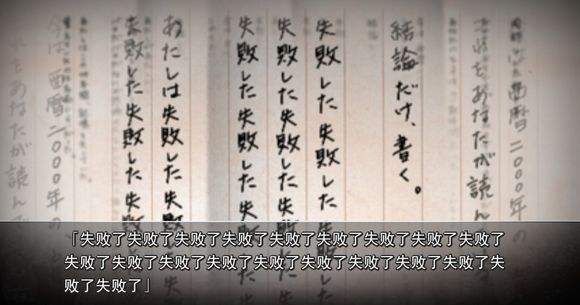 西暦二〇〇〇年の
これをあなたが読ん
結論だけ、書く。
失敗した失敗した
失敗した失敗した
失敗した失敗した
わたしは失敗した
失敗した失敗した
今は西暦二〇〇〇年の
これをあなたが読ん
「失败了失败了失败了失败了失败了失败了失败了失败了失败了
失败了失败了失败了失败了失败了失败了失败了失败了失败了失
败了失败了」